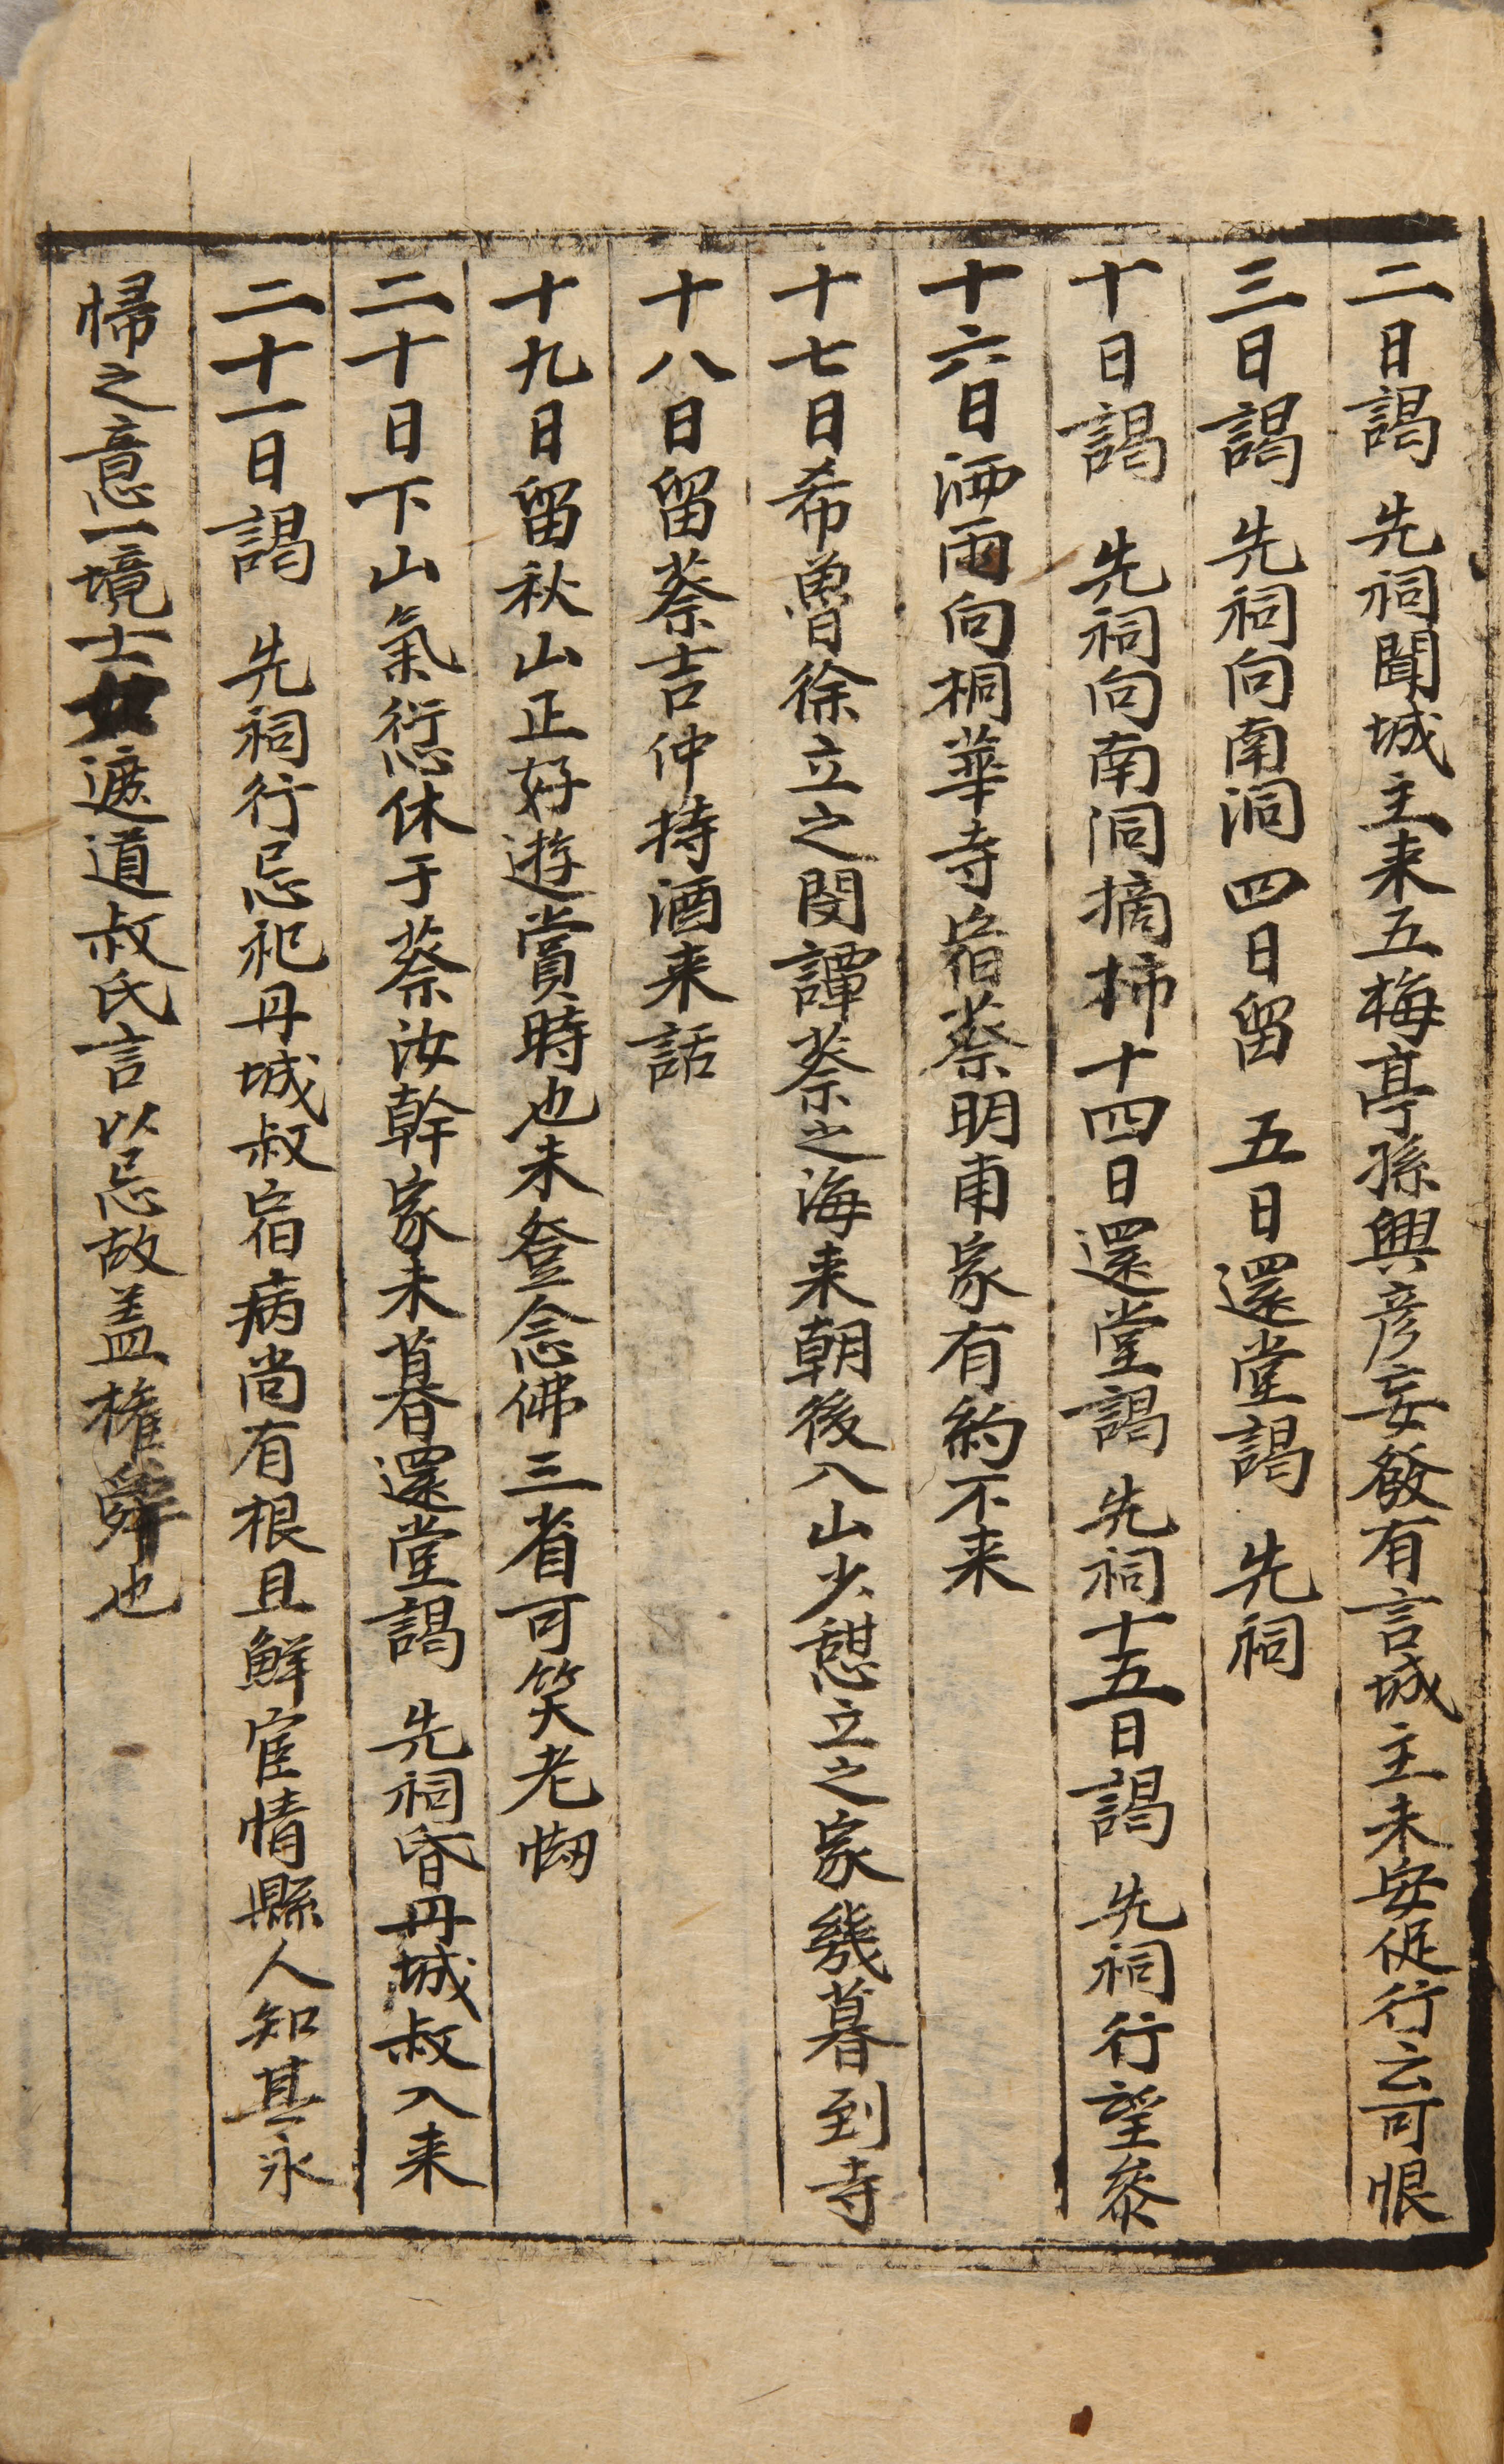 二日謁 先祠聞城主来五梅亭孫興彦妄發有言城主未安促行云可恨
三日謁 先祠向南洞四日留 五日還堂謁 先祠
十日謁 先祠向南洞摘柿十四日還堂謁 先祠十五日謁 先祠行望叅
十六日洒雨向桐華寺宿蔡明甫家有約不来
十七日希魯徐立之閔譚蔡之海来朝後入山少憩立之家幾暮到寺
十八日留蔡吉仲持酒来話
十九日留秋山正好遊賞時也未登念佛三省可笑老㤼
二十日下山氣愆休于蔡汝幹家未暮還堂謁 先祠昏丹城叔入来
二十一日謁 先祠行忌祀丹城叔宿病尚有根且鮮宦情縣人知其永
帰之意一境士女遮道叔氏言以忌故盖權辭也